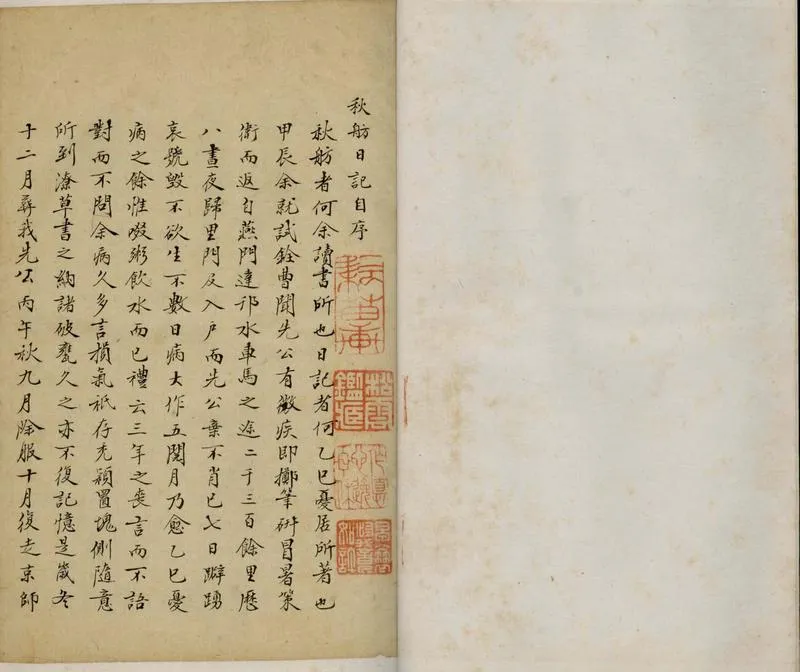 秋舫日記自序
秋舫者何余讀書所也日記者何乙巳憂居所著也
甲辰余就試銓曹聞先公有微疾即擲筆研冒暑策
衛而返自燕門達邗水車馬之途二千三百餘里歷
八晝夜歸里門及入戶而先公棄不肖已七日擗踴
哀號毀不欲生不數日病大作五閱月乃愈乙巳憂
病之餘惟啜粥飲水而已禮云三年之喪言而不語
對而不問余病久多言損氣祇存禿穎置塊側隨意
所到潦草書之納諸破甕久之亦不復記憶是歲冬
十二月葬我先公丙午秋九月除服十月復走京師